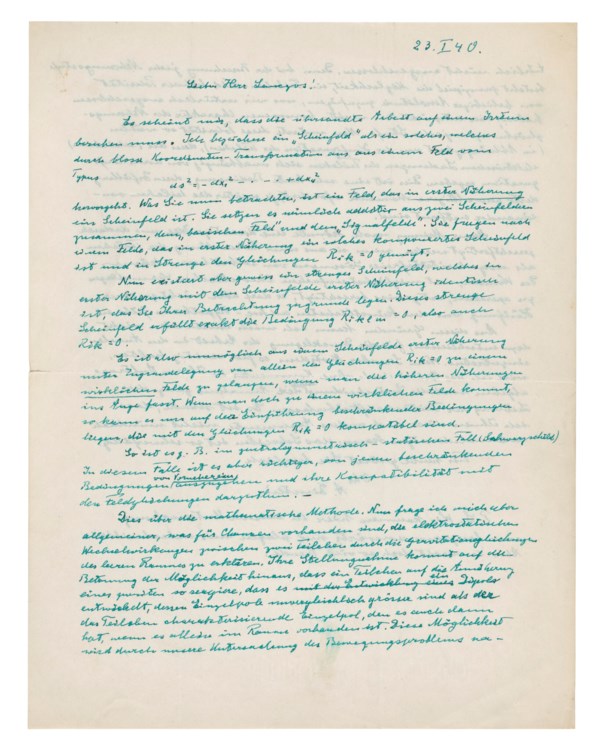 23. I 40.
Lieber Herr Lanczos!
Es scheint mir, dass die übersandte Arbeit auf einem Irrtum
beruhen muss. Ich bezeichne ein „Scheinfeld" als ein solches, welches
durch blosse Koordinaten-Transformation aus einem Feld vom
Typus
ds² = - dx₁² - · · · + dx₄²
hervorgeht. Was Sie nun betrachten, ist ein Feld, das in erster Näherung
ein Scheinfeld ist. Sie setzen es nämlich additiv aus zwei Scheinfeldern
zusammen, dem „basischen Feld" und dem „Signalfeld". Sie fragen nach
einem Felde, das in erster Näherung ein solches komponiertes Scheinfeld
ist und in Strenge den Gleichungen Rik = 0 genügt.
Nun existiert aber gewiss ein strenges Scheinfeld, welches in
erster Näherung mit dem Scheinfelde erster Näherung identisch
ist, das Sie Ihrer Betrachtung zugrunde legen. Dieses strenge
Scheinfeld erfüllt exakt die Bedingung Riklm = 0, also auch
Rik = 0.
Es ist also unmöglich aus einem Scheinfelde erster Näherung
unter Zugrundelegung von allein den Gleichungen Rik = 0 zu einem
wirklichen Felde zu gelangen, wenn man die höheren Näherungen
ins Auge fasst. Wenn man doch zu einem wirklichen Felde kommt,
so kann es nur auf der Einführung beschränkender Bedingungen
liegen, die mit den Gleichungen Rik = 0 kompatibel sind.
So ist es z. B. im zentralsymmetrisch-statischen Fall (Schwarzschild)
In diesem Falle ist es aber richtiger, von jenen beschränkenden
Bedingungen von Vornherein auszugehen und ihre Kompatibilität mit
den Feldgleichungen darzuthun. —
Dies über die mathematische Methode. Nun frage ich mich aber
allgemeiner, was für Chancen vorhanden sind, die elektrostatischen
Wechselwirkungen zwischen zwei Teilchen durch die Gravitationsgleichungen
des leeren Raumes zu erklären. Ihre Stellungnahme kommt auf die
Betonung der Möglichkeit hinaus, dass ein Teilchen auf die Annäherung
eines zweiten so reagiere, dass es einen Dipol
entwickelt, dessen Einzelpole unvergleichlich grösser sind als der
das Teilchen charakterisierende Einzelpol, den es auch dann
hat, wenn es alleine im Raume vorhanden ist. Diese Möglichkeit
wird durch unsere Untersuchung des Bewegungsproblems na-